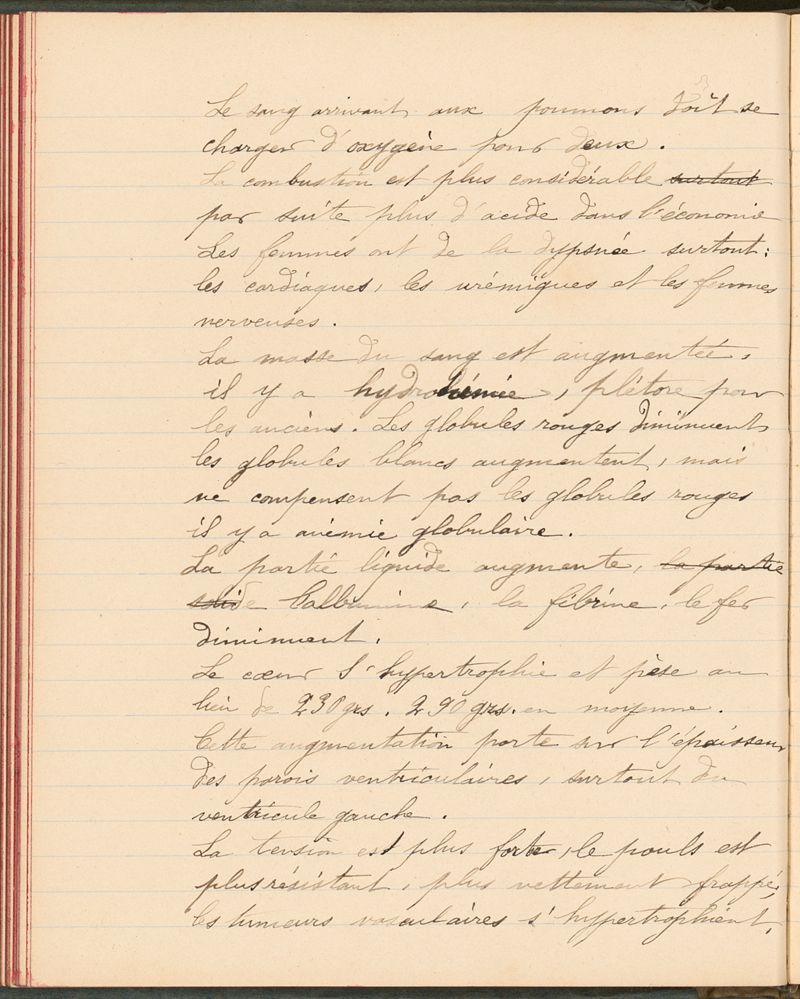 Le sang arrivant aux poumons doit se
charger d'oxygène pour deux.
La combustion est plus considérable surtout
par suite plus d'acide dans l'économie
Les femmes ont de la dypsnée surtout :
les cardiaques, les urémiques et les femmes
nerveuses.
La masse du sang est augmentée,
il y a hydrohémie, plétore pour
les anciens. Les globules rouges diminuent
les globules blancs augmentent, mais
ne compensent pas les globules rouges
il y a anémie globulaire.
La partie liquide augmente, la partie
solide l'albumine, la fibrine, le fer
diminuent.
Le cœur s'hypertrophie et pèse au
lieu de 230 grs. 290 grs. en moyenne.
Cette augmentation porte sur l'épaisseur
des parois ventriculaires, surtout du
ventricule gauche.
La tension est plus forte, le pouls est
plus résistant, plus nettement frappé,
les tumeurs vasculaires s'hypertrophient,